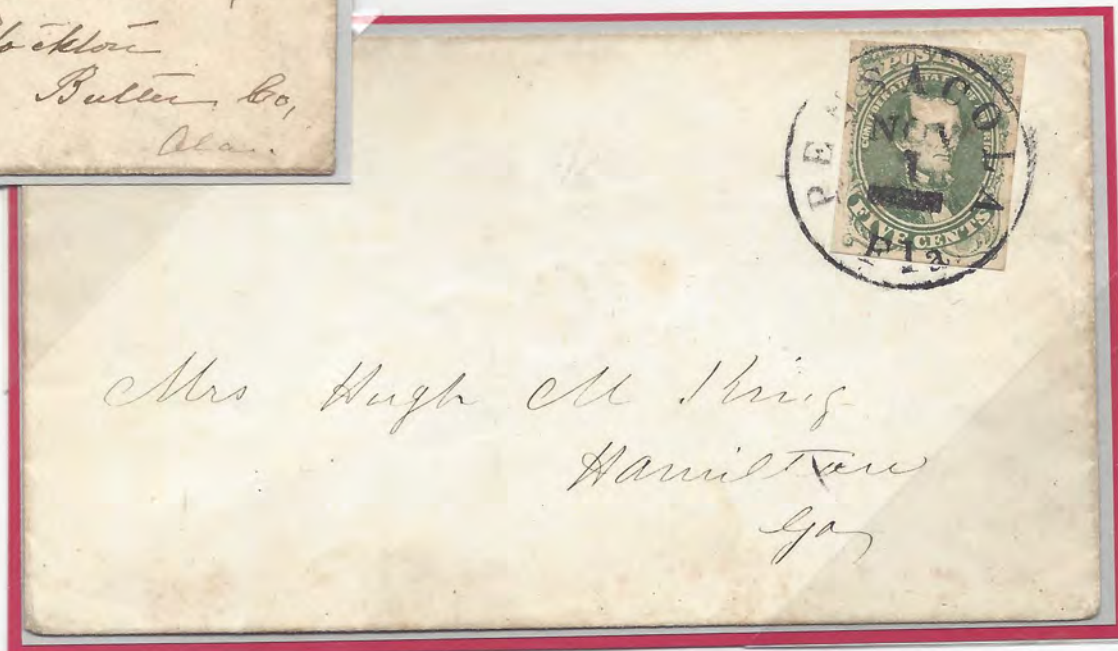 Butler Co,
Ala.
POSTAGE
CONFEDERATE STATES OF AMERICA
FIVE CENTS
PENSACOLA
NOV
1
Fla
Mrs Hugh M King
Hamilton
Ga